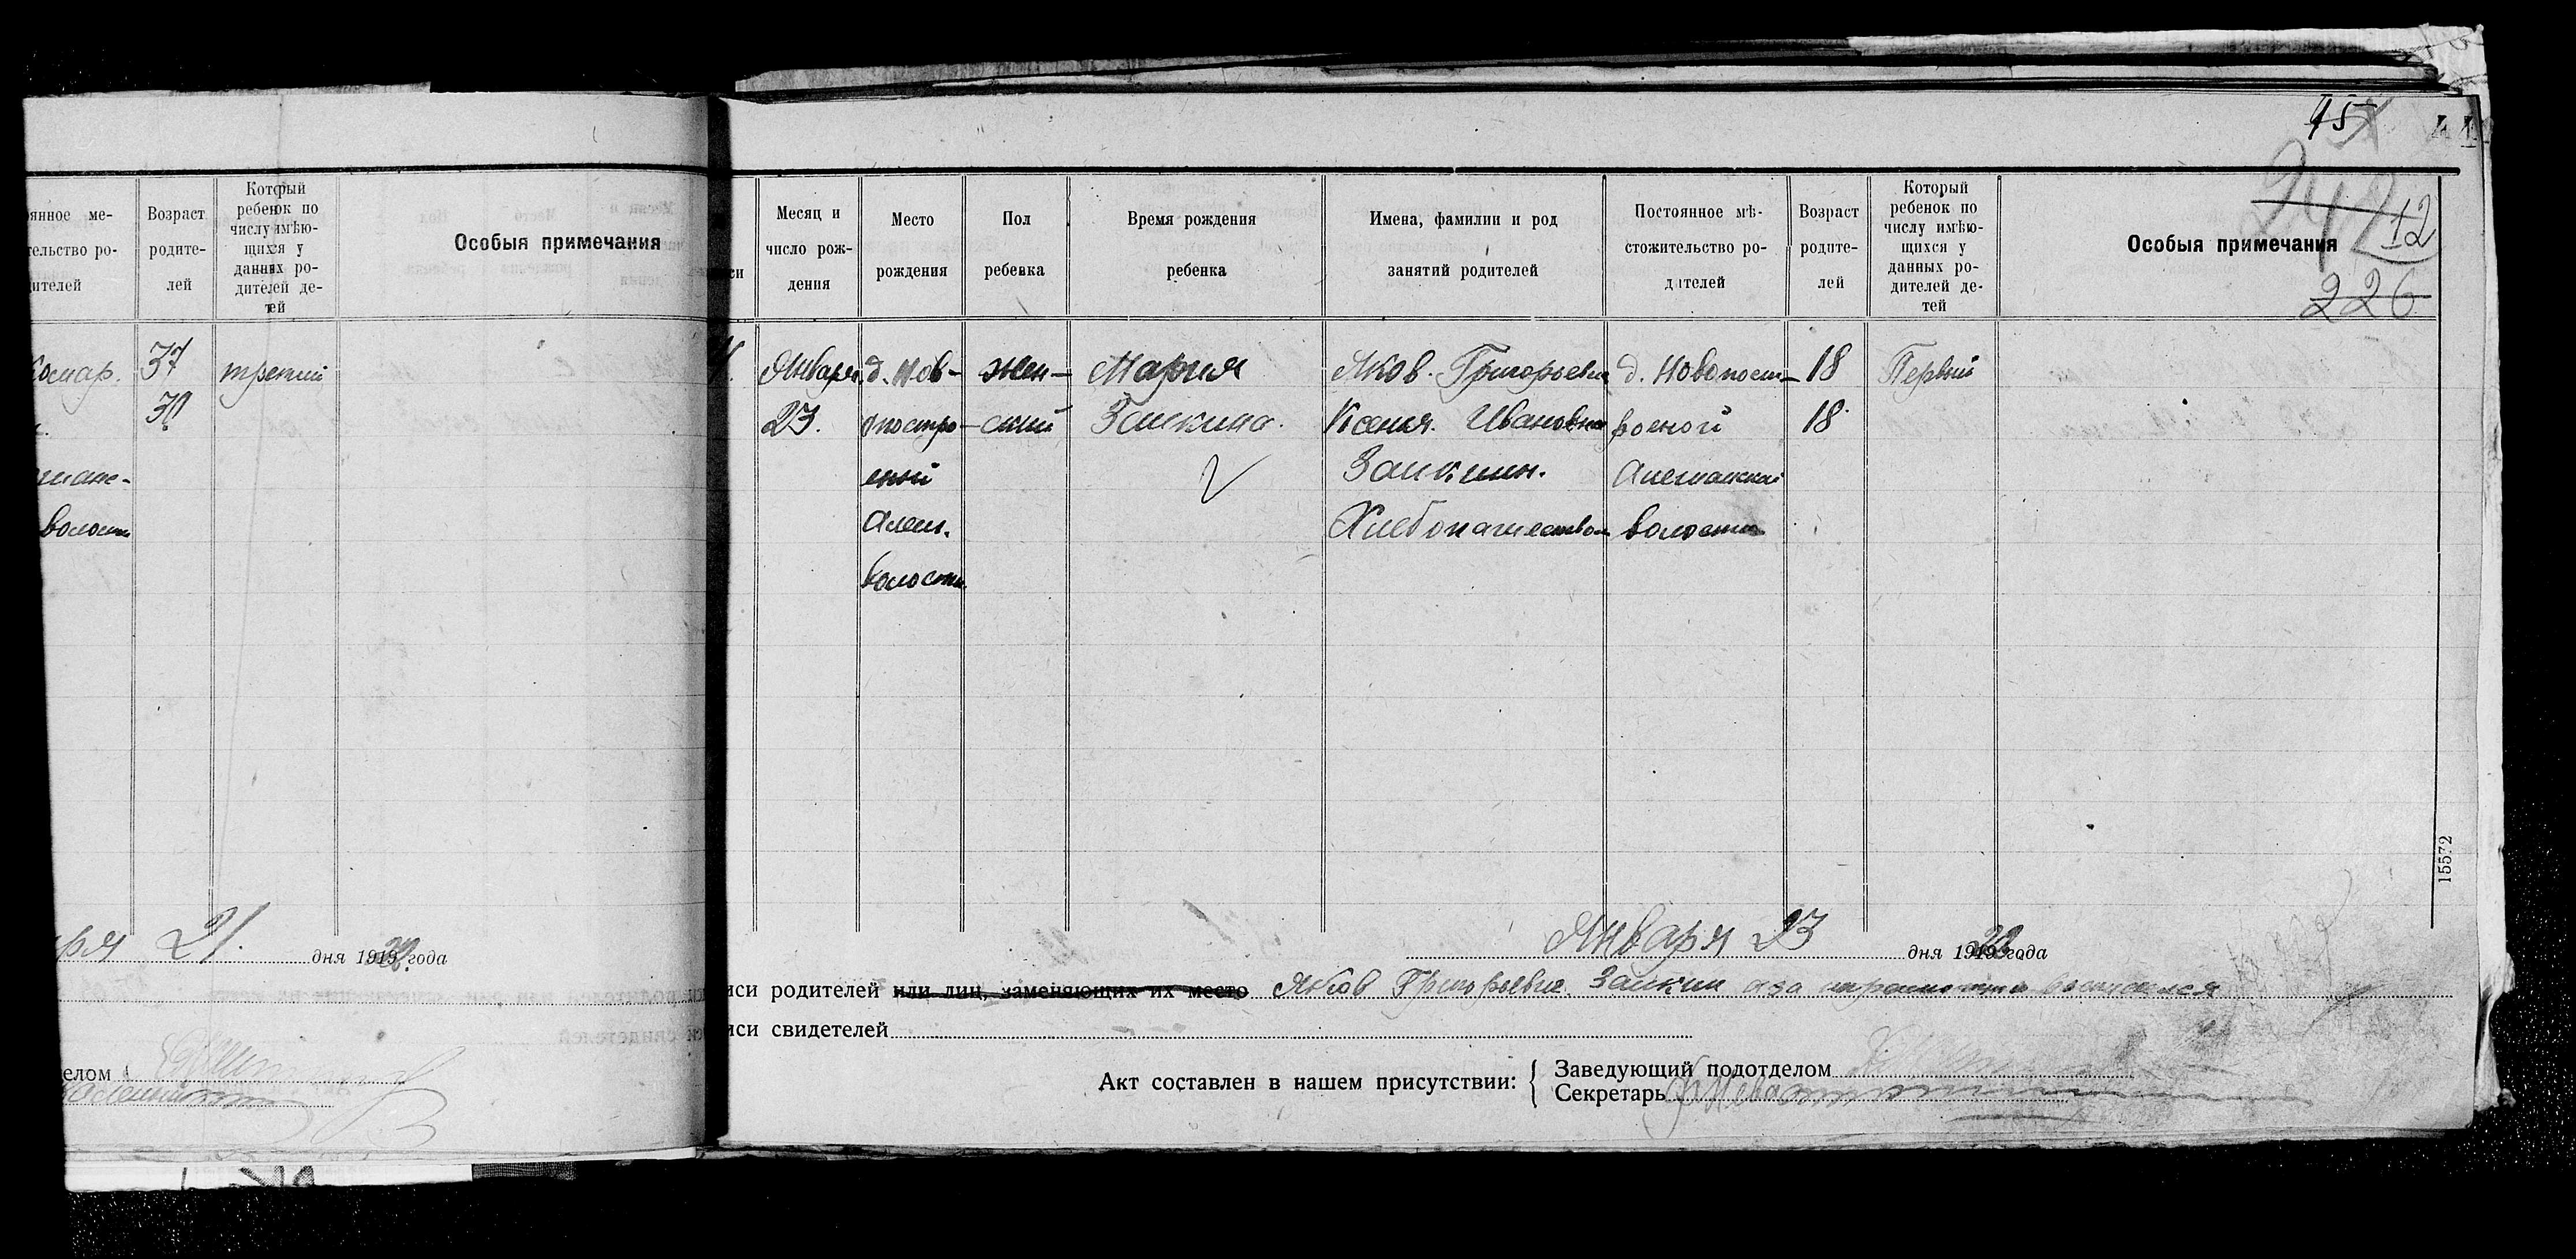 45
247
12
226
янное ме-
тельство ро-
ителей
Возраст
родите-
лей
Который
ребенок по
числу имѣю-
щихся у
данных ро-
дителей де-
тей
Особыя примечания
37
третий
волости
21.
дня 1919 года
елом
си
Месяц и
число рож-
дения
Место
рождения
Пол
ребенка
Время рождения
ребенка
Имена, фамилии и род
занятий родителей
Постоянное мѣ-
стожительство ро-
дителей
Возраст
родите-
лей
Который
ребенок по
числу имѣю-
щихся у
данных ро-
дителей де-
тей
Особыя примечания
Января
23.
д. Нов-
опостро-
еной
Алеш.
волости
жен-
ский
Мария
Заикина.
Яков. Григорьевич
Ксенья. Ивановна
Заикин.
Хлебопашеством
д. Новопост-
роеной
волости
18
18
Первый
15572
Января 23 дня 1919 года
иси родителей или лиц, заменяющих их место Яков Григорьевич Заикин
иси свидетелей
Акт составлен в нашем присутствии:
Заведующий подотделом
Секретарь